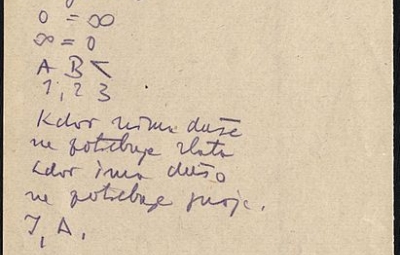 0 = ∞
∞ = 0
A B C
1, 2 3
Kdor nima duše
ne potrebuje zlata
kdor ima dušo
ne potrebuje gnoja.
I, A.